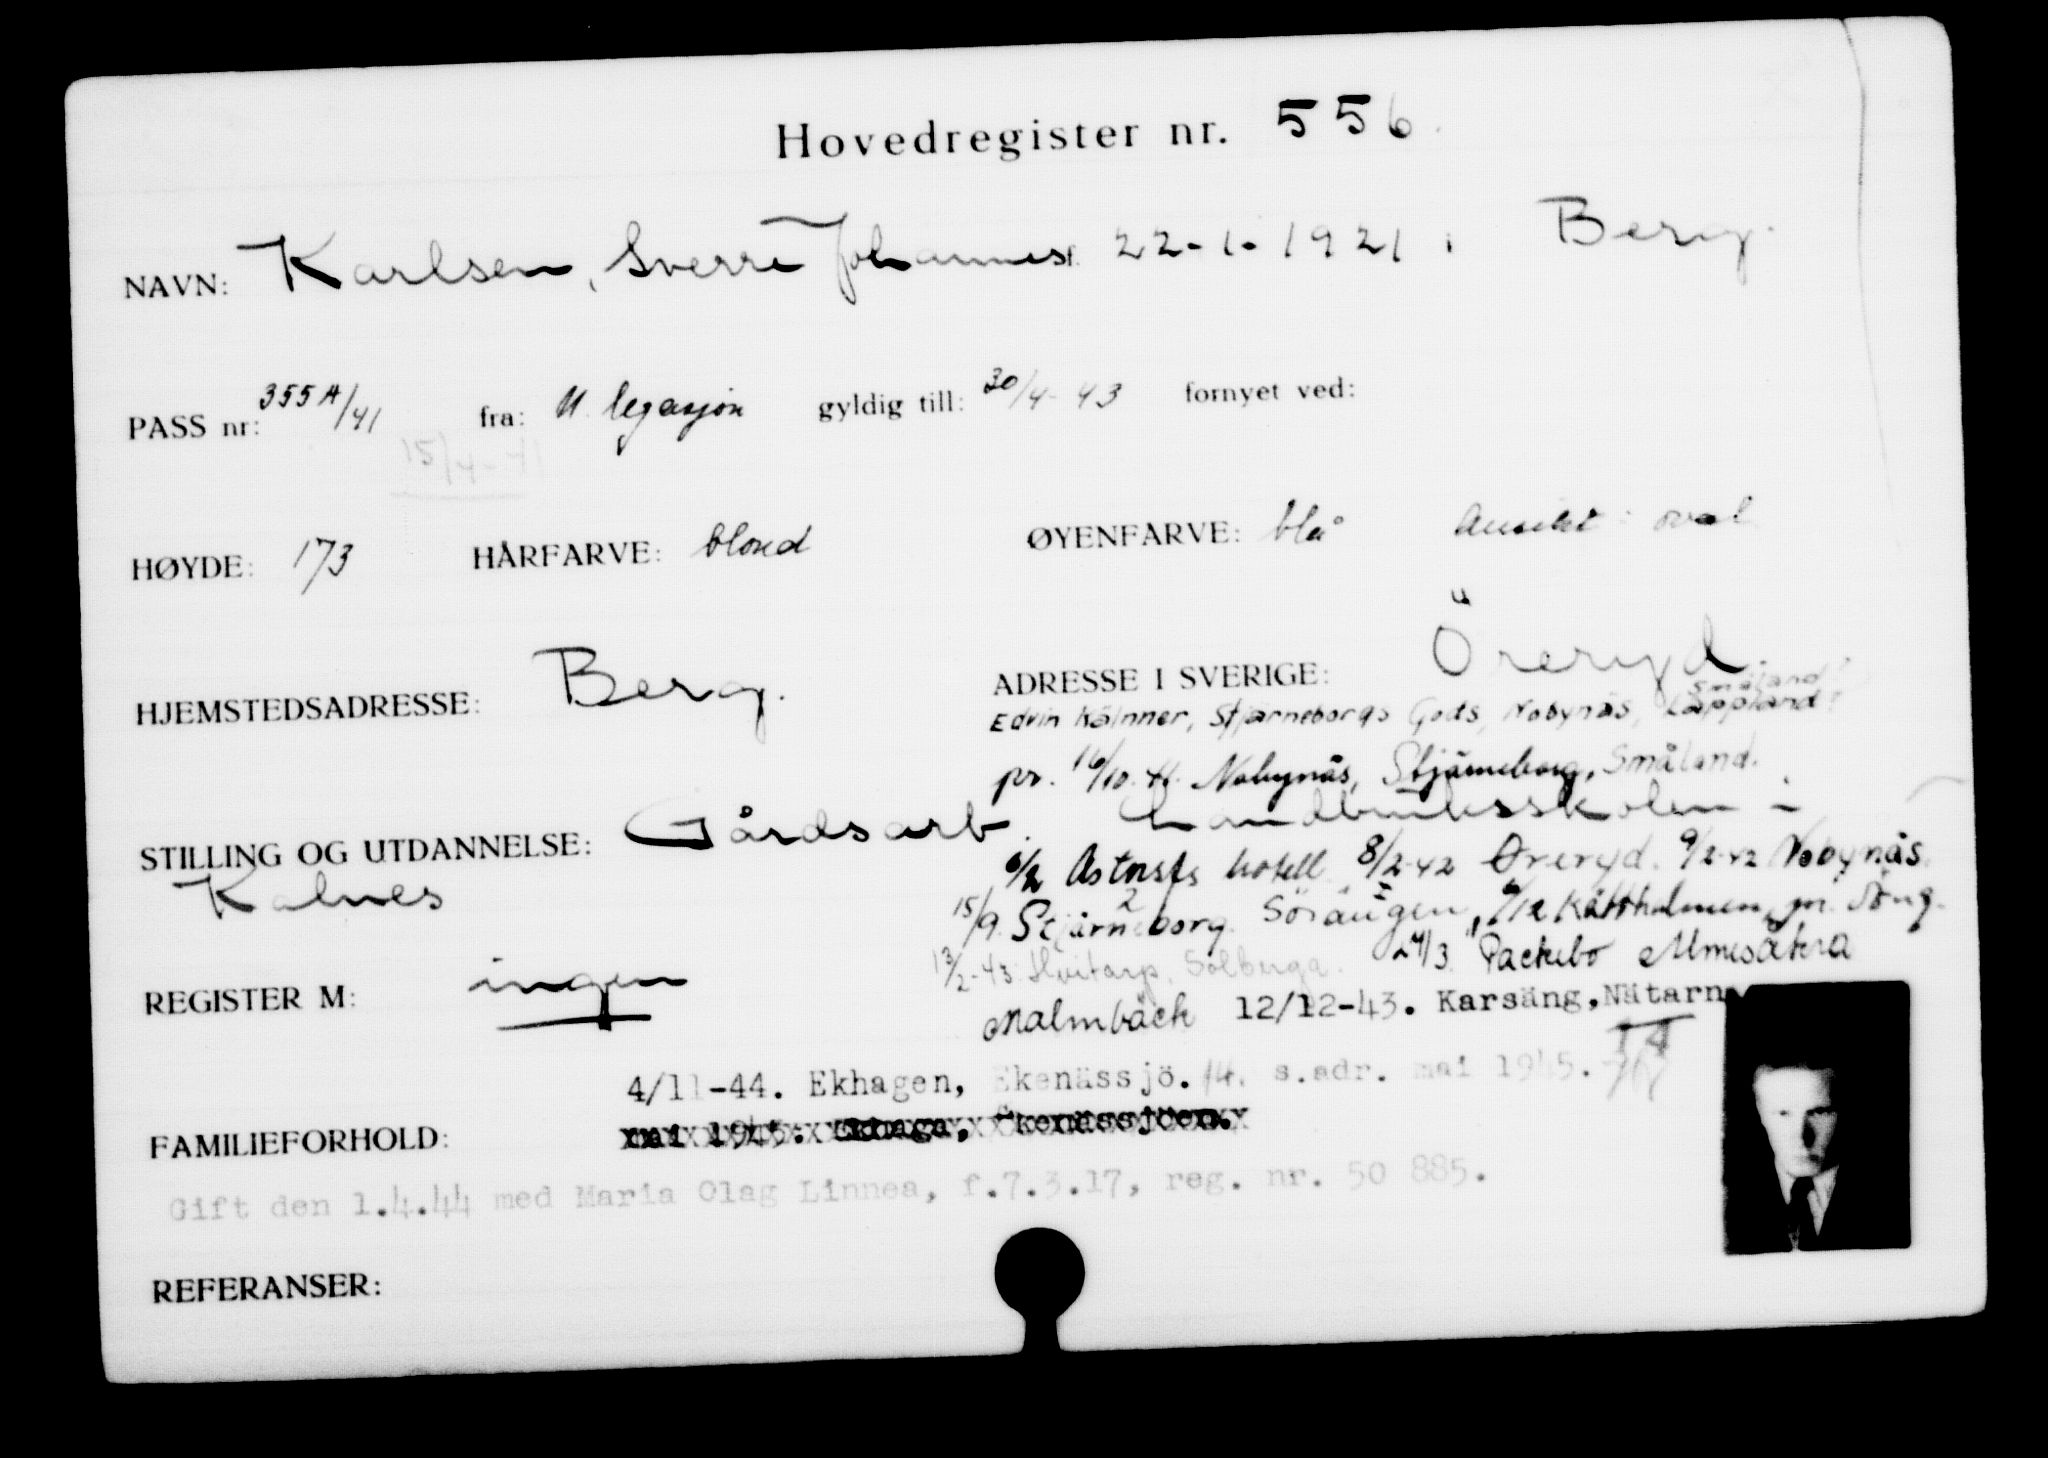 Hovedregister nr. 556.
NAVN: Karlsen, Sverre Johannes f. 22-1-1921 i Berg.
PASS nr: 355A/41 fra: U. legasjon gyldig till: 30/4-43 fornyet ved:
15/4-41
HØYDE: 173 HÅRFARVE: blond ØYENFARVE: blå Ansikt: oval
HJEMSTEDSADRESSE: Berg. ADRESSE I SVERIGE: Öreryd
Småland?
Edvin Kälnner, Stjärneborgs Gods, Nobynäs, Lappland?
pr. 16/10.41. Nobynäs, Stjärneborg, Småland.
STILLING OG UTDANNELSE: Gårdsarb. Landbruksskolen i
Kalnes
6/2 Astorsts hotell 8/2-42 Øreryd. 9/2-42 Nobynäs.
15/9. Stjärneborg. Sörängen, 6/12 Kättholmen, pr.
13/2-43 Hvitarp, Solberga. 24/3 Packebo Almesåkra
REGISTER M: ingen
Malmbäck 12/12-43. Karsäng, Nätarn
4/11-44. Ekhagen, Ekenässjö. 14. s.adr. mai 1945.
FAMILIEFORHOLD:
Gift den 1.4.44 med Maria Olag Linnea, f.7.3.17, reg. nr. 50 885.
REFERANSER: